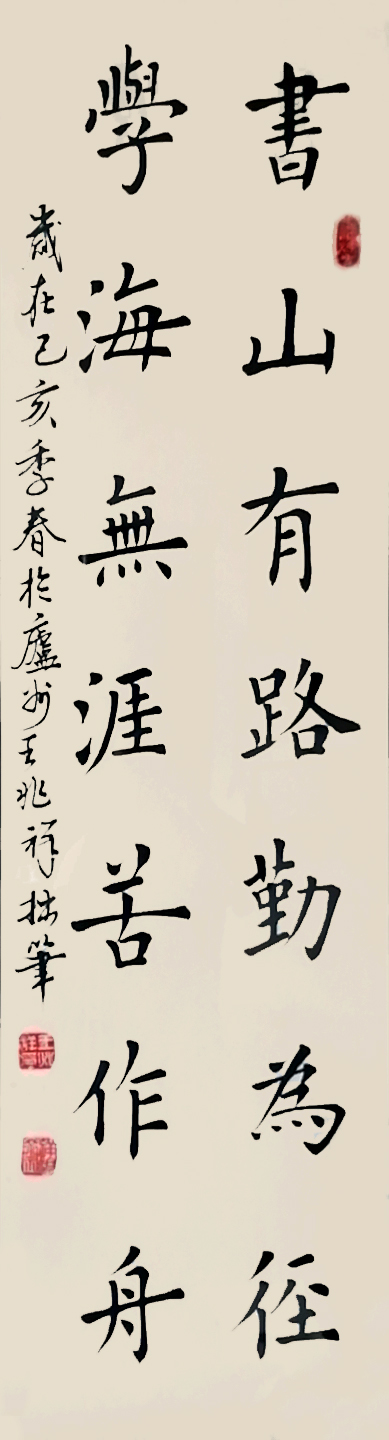 書山有路勤為径
學海無涯苦作舟
歲在己亥季春於廬州王兆祥拙筆